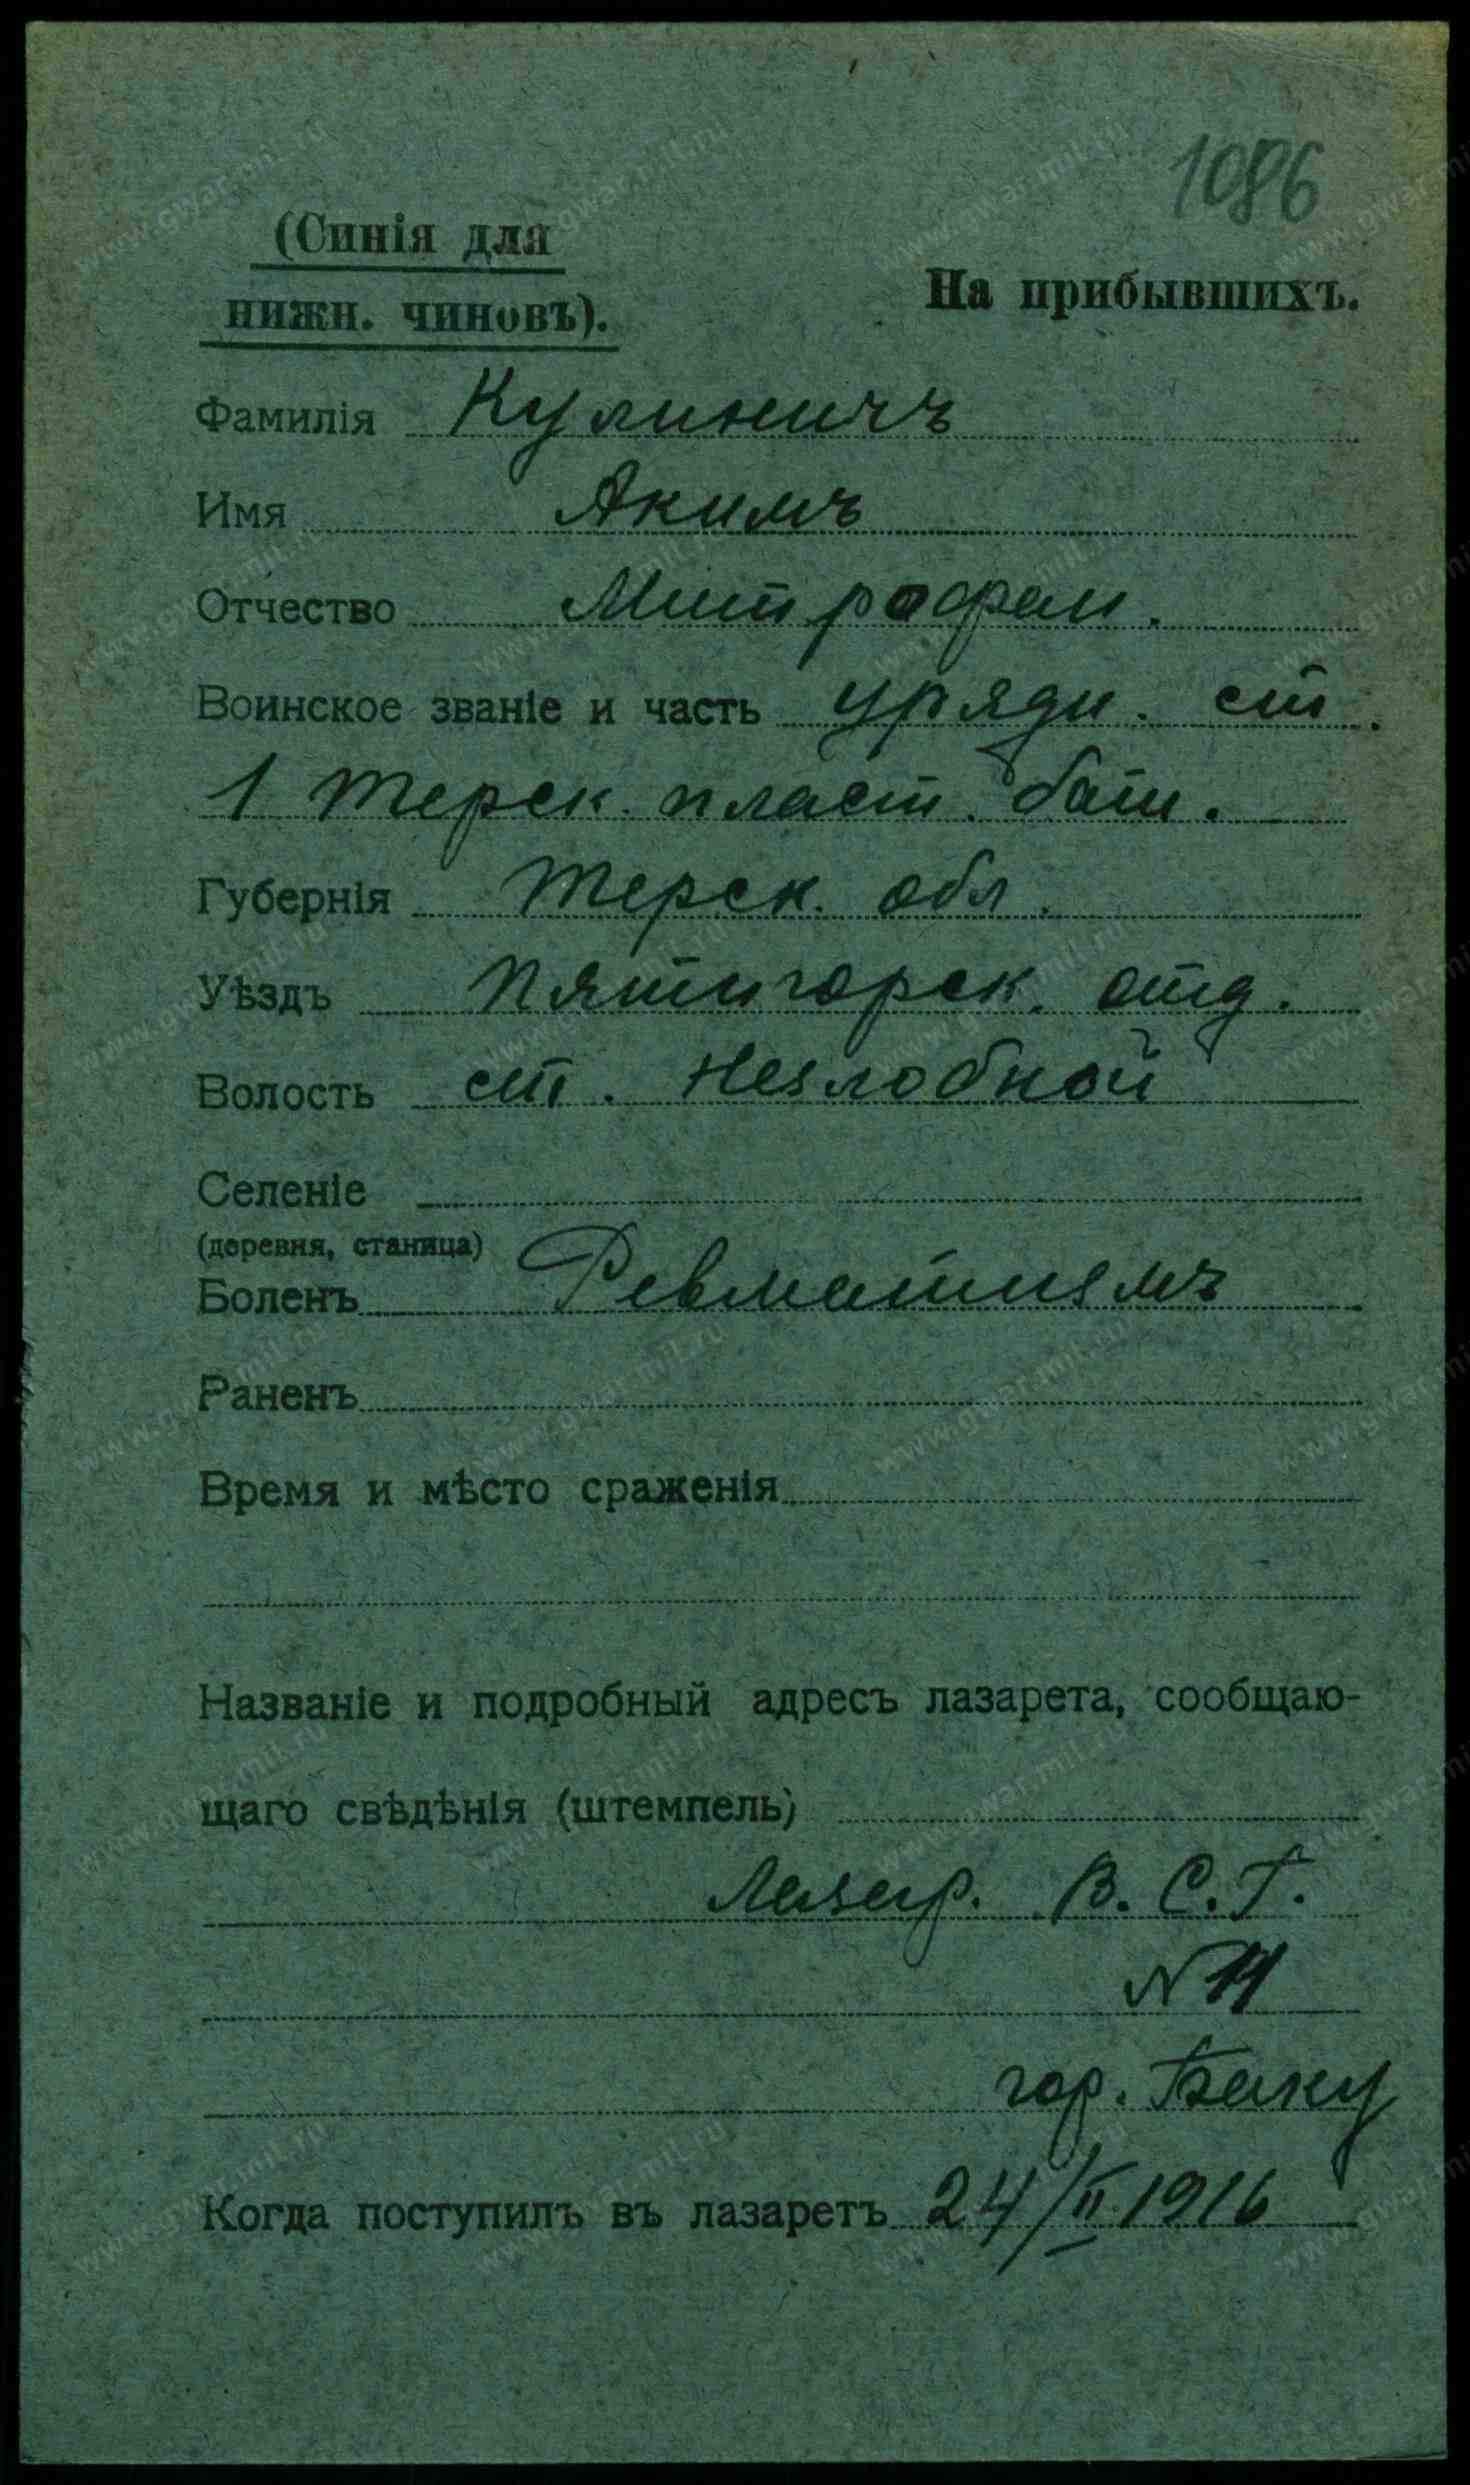 1086
(Синія для
нижн. чиновъ).
На прибывшихъ.
Фамилія Кулиничъ
Имя Акимъ
Отчество Митрофан.
Воинское званіе и часть урядн. ст.
1 Терск. пласт. бат.
Губернія Терск. обл.
Уѣздъ Пятигорск. отд.
Волость ст. Незлобной
Селеніе
(деревня, станица)
Боленъ Ревматизмъ
Раненъ
Время и мѣсто сраженія
Названіе и подробный адресъ лазарета, сообщаю-
щаго свѣдѣнія (штемпель)
Лазар. В. С. Г.
N
гор. Баку
Когда поступилъ въ лазаретъ 24/II 1916
www.gwar.mil.ru